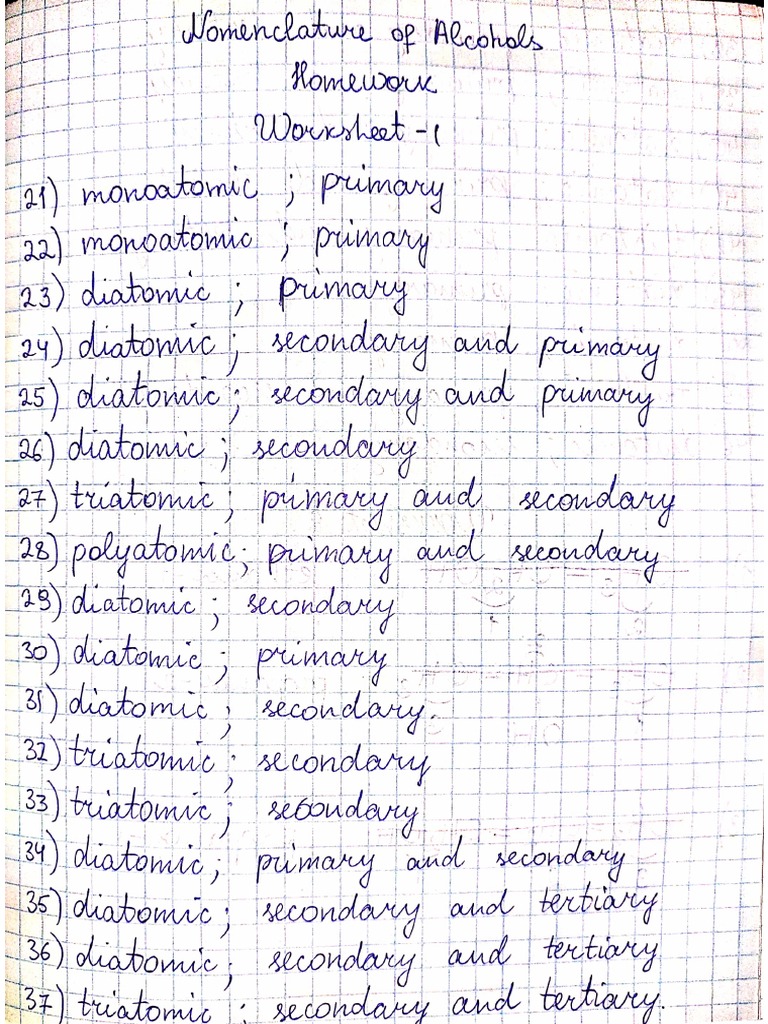 Nomenclature of Alcohols
Homework
Worksheet -1
21) monoatomic ; primary
22) monoatomic ; primary
23) diatomic ; primary
24) diatomic ; secondary and primary
25) diatomic ; secondary and primary
26) diatomic ; secondary
27) triatomic ; primary and secondary
28) polyatomic ; primary and secondary
29) diatomic ; secondary
30) diatomic ; primary
31) diatomic ; secondary.
32) triatomic ; secondary
33) triatomic ; secondary
34) diatomic ; primary and secondary
35) diatomic ; secondary and tertiary
36) diatomic ; secondary and tertiary
37) triatomic ; secondary and tertiary.